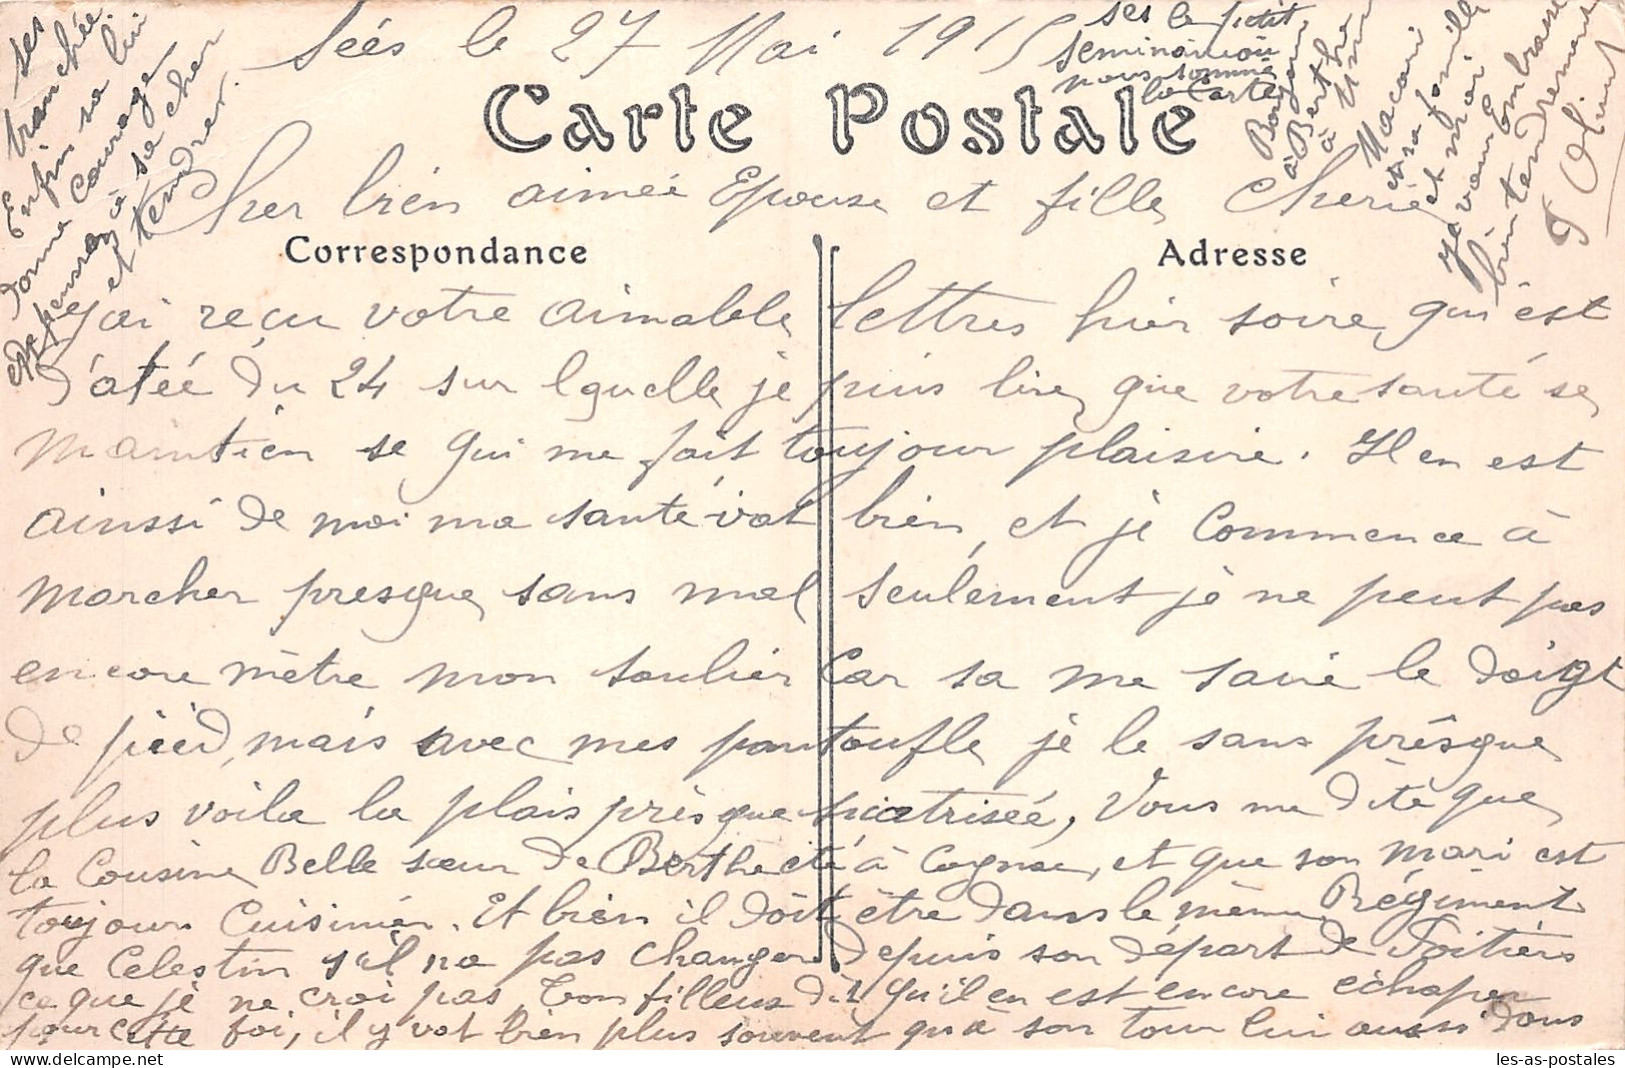 Séés le 27 Mai 1915
Carte Postale
Cher bien aimée Epouse et fille Cherie
Correspondance
Adresse
J'ai reçu votre aimable lettres hier soire, qui est
d'atéé du 24 sur lquelle je puis lire que votre santé se
maintien se qui me fait toujour plaisire. Il en est
ainssi de moi ma santé vat bien, et je Commence à
marcher presque sans mal seulement je ne peut pas
encore mètre mon soulier Car sa me saire le doigt
de pieid, mais avec mes pantoufle je le sans prêsque
plus voila la plais près que siatrisée, Vous me dite que
la Cousine Belle sœur de Berthe eté à Cognac, et que son mari est
toujour Cuisinier. Et bien il doit être dans le même Régiment
que Celestin s'il na pas changer depuis son départ de Poitiérs
ce que je ne croi pas, Ton filleus dit qu'il en est encore échaper
pour cette foi, il y vat bien plus souvent qu'à son tour lui aussi dans
ses
tranchée
Enfin sa lui
donne Courage
de penser à sa cher
et tendrer.
ses le petit
seminaire où
nous somme
la Carte
Bonjour
à Berthe
à
Macari
et sa famille
et moi
je vous Embrasse
bien tendrement
J Olivut
les-as-postales